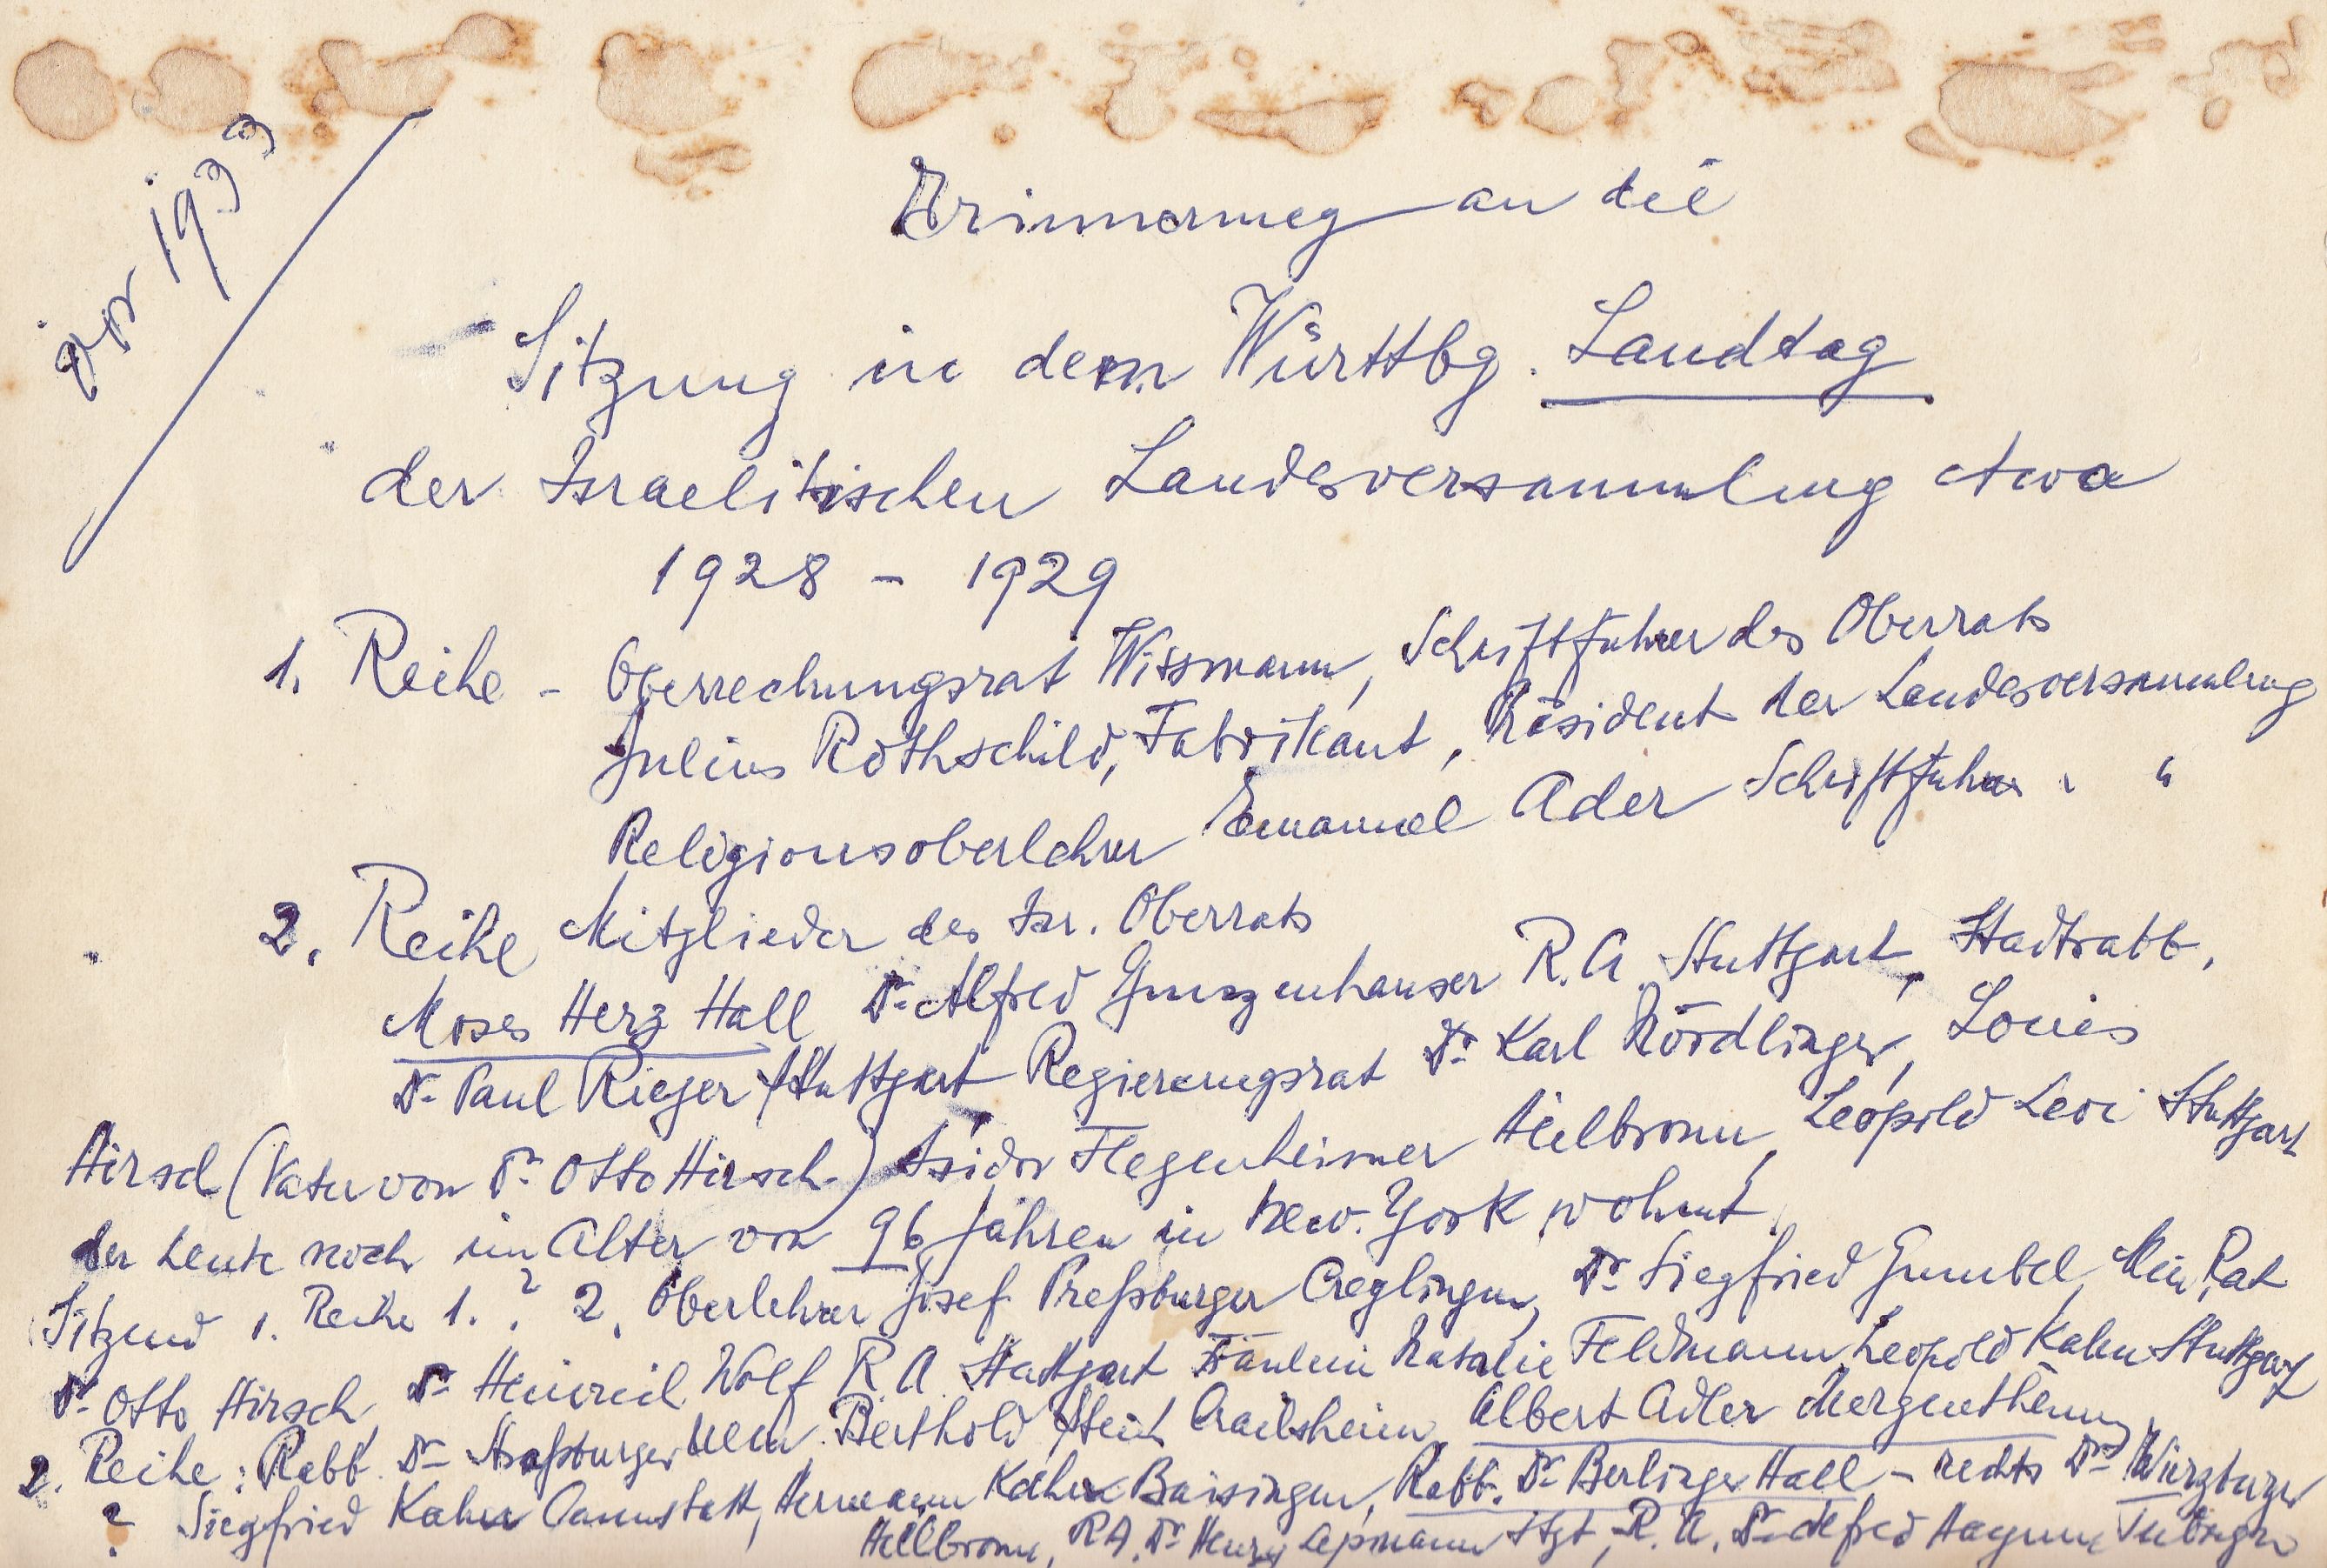 vor 1933
Erinnerung an die
Sitzung in dem Württbg. Landtag
der Israelitischen Landesversammlung etwa
1928 - 1929
1. Reihe - Oberrechnungsrat Wissmann, Schriftführer des Oberrats
Julius Rothschild, Fabrikant, Präsident der Landesversammlung
Religionsoberlehrer Emanuel Ader Schriftführer " "
2. Reihe Mitglieder des Isr. Oberrats
Moses Herz Hall Dr. Alfred Gunzenhauser R.A. Stuttgart, Stadtrabb.
Dr. Paul Rieger Stuttgart Regierungsrat Dr. Karl Nördlinger, Louis
Hirsch (Vater von Dr. Otto Hirsch) Isidor Flegenheimer Heilbronn, Leopold Levi Stuttgart
der heute noch im Alter von 96 Jahren in New. York wohnt.
Sitzend 1. Reihe 1. ? 2. Oberlehrer Josef Preßburger Creglingen, Dr. Siegfried Gumbel, Min. Rat
Dr. Otto Hirsch, Dr. Heinrich Wolf R.A. Stuttgart Fräulein Natalie Feldmann, Leopold Kahn Stuttgart
2. Reihe: Rabb. Dr. Straßburger Ulm. Berthold Stein Crailsheim, Albert Adler Mergentheim,
? Siegfried Kahn Cannstatt, Hermann Kahn Baisingen, Rabb. Dr. Berlinger Hall - rechts Dr. Würzburger
Heilbronn, RA. Dr. Henry Stgt, R.A. Dr. Alfred Tübingen